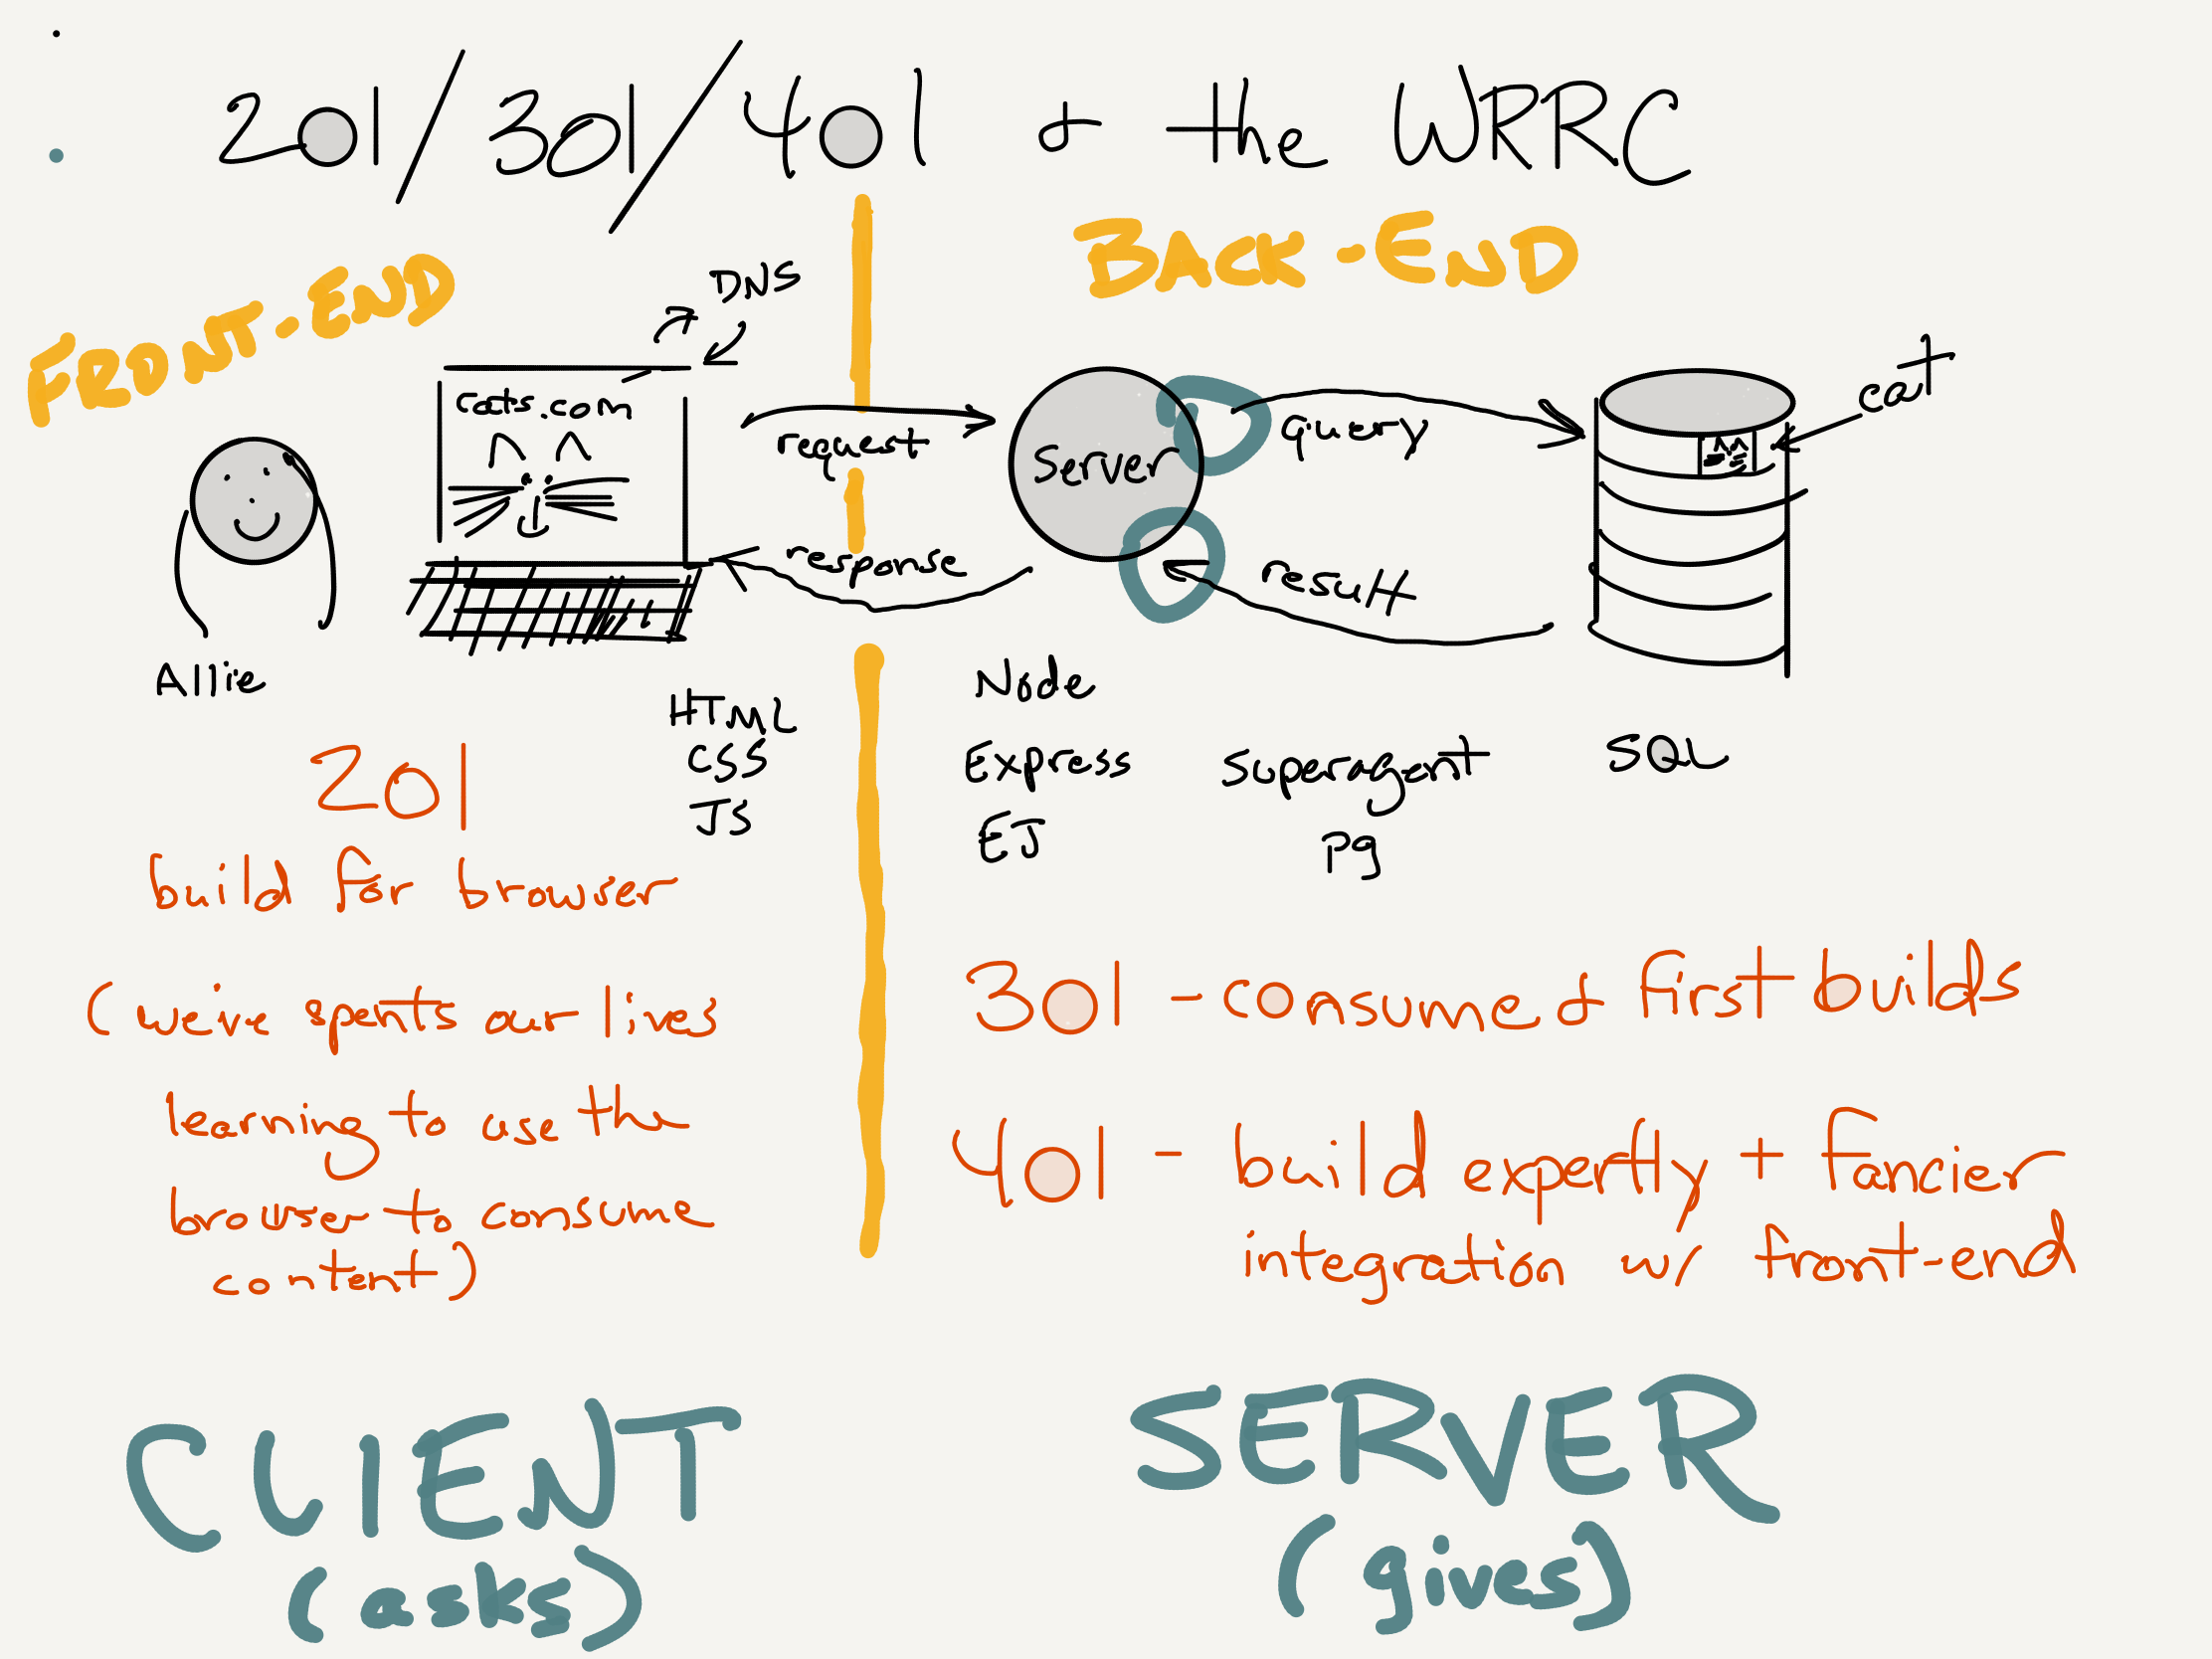 201/301/401 + the WRRC
FRONT-END
BACK-END
DNS
cats.com
request
response
Server
query
result
cat
Allie
HTML
CSS
JS
Node
Express
EJ
superagent
pg
SQL
201
build for browser
(we've spents our lives
learning to use the
browser to consume
content)
301 - consume + first builds
401 - build expertly + fancier
integration w/ front-end
CLIENT
(asks)
SERVER
(gives)